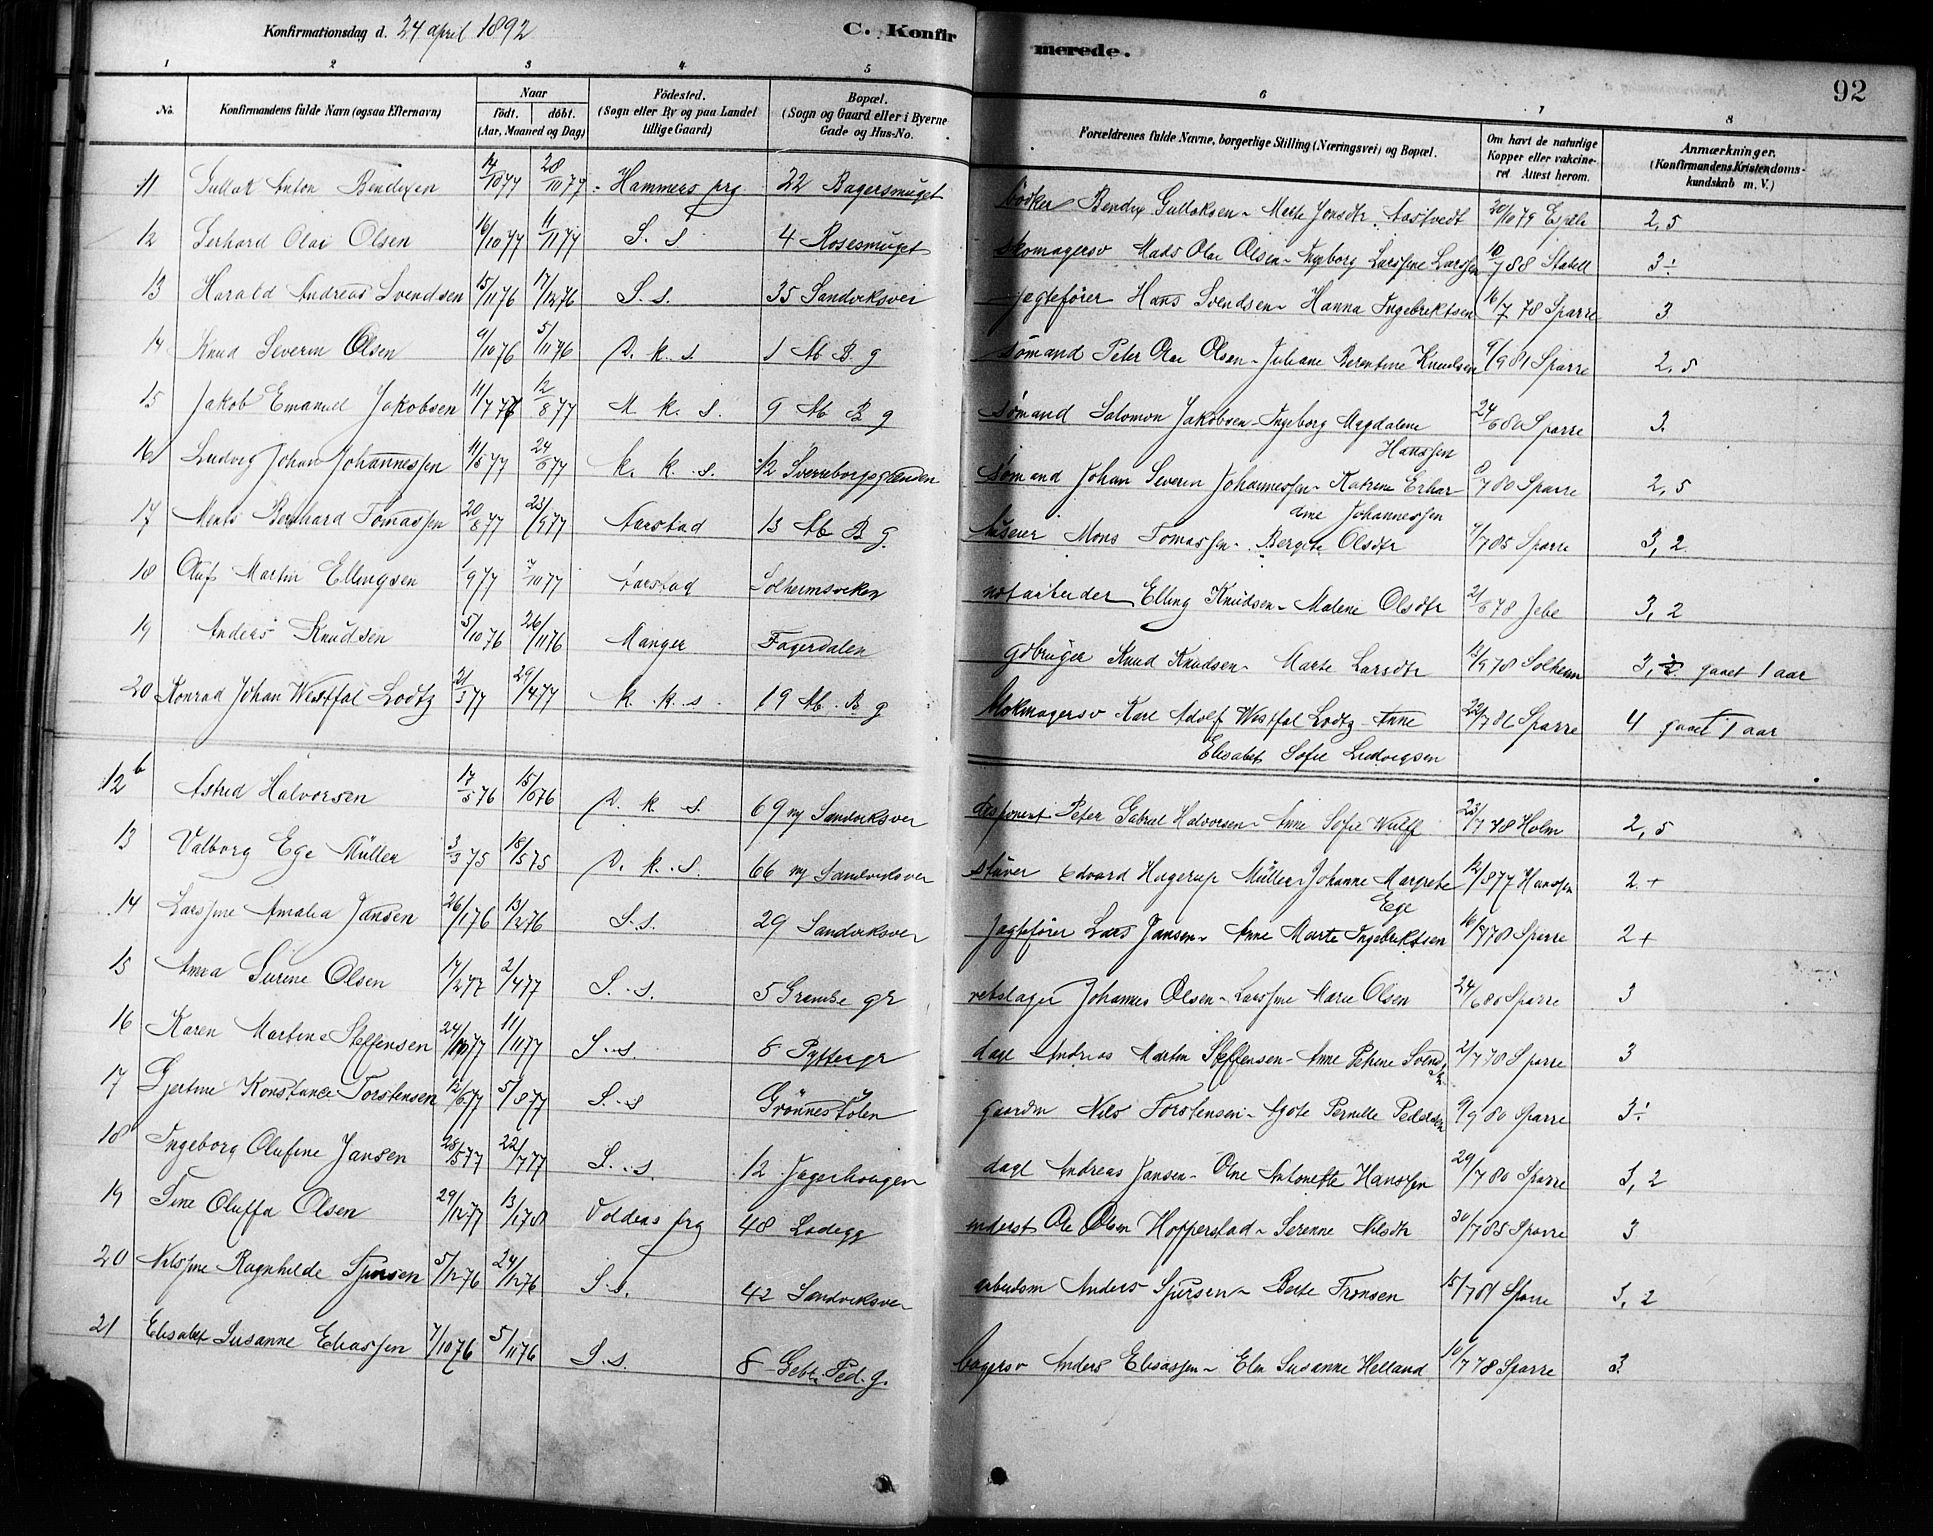 Konfirmationsdag d. 24 april 1892 C. Konfirmerede. 92
1 2 3 4 5 6 7 8
No. Konfirmandens fulde Navn (ogsaa Efternavn) Naar født. døbt. (Aar, Maaned og Dag) Fødested. (Sogn eller By og paa Landet tillige Gaard) Bopæl. (Sogn og Gaard eller i Byerne Gade og Hus-No. Forældrenes fulde Navne, borgerlige Stilling (Næringsvei) og Bopæl. Om havt de naturlige Kopper eller vakcineret. Attest herom. Anmærkninger. (Konfirmandens Kristendomskundskab m. V.)
11 Gullak Anton Bendixen 14/10 77 28/10 77 Hammers prg 22 Bagersmuget bødker Bendix Gullaksen - Mette Jonsdtr 20/10 79 2,5
12 Gerhard Olai Olsen 16/10 77 11/11 77 S. S 4 Rosesmuget skomagersv Mads Olai Olsen - Ingeborg Larsine Larssen 10/7 88 Stabell 3÷
13 Harald Andreas Svendsen 15/11 76 17/12 76 S. s. 35 Sandviksvei Jegtefører Hans Svendsen - Hanna Ingebrektsen 16/7 78 Sparre 3
14 Knud Severin Olsen 9/10 76 5/11 76 D. k. s 1 Ab B g sømand Peter Olai Olsen - Juliane Berentine Knudsen 9/9 81 Sparre 2,5
15 Jakob Emanuel Jakobsen 11/7 77 12/8 77 M k. s. 9 Ab B g sømand Salomon Jakobsen - Ingeborg Magdalene Hanssen 24/6 80 Sparre 3.
16 Ludvig Johan Johannessen 11/6 77 24/6 77 K. k. s. 12 Sverreborgsgrænden sømand Johan Severin Johannessen - Katrine Johannessen 8/7 80 Sparre 2,5
17 Ments Bernhard Tomassen 20/8 77 23/9 77 Aarstad 13 Ab B g. Mons Tomassen - Bergite Olsdtr 7/7 85 Sparre 3, 2
18 Oluf Martin Ellingsen 1/9 77 7/10 77 Aarstad Solheimsviken Elling Knudsen - Malene Olsdtr 21/6 78 Jebe 3, 2
19 Anders Knudsen 5/10 76 26/11 76 Manger Fagerdalen gdbruger Knud Knudsen - Marte Larsdtr 12/9 78 Solheim 3, gaaet 1 aar
20 Konrad Johan Westfal Lodtz 21/3 77 29/4 77 K. k. s. 19 Ab. B g blokmagersv Karl Adolf Westfal Lodtz - Anne Elisabet Sofie Ludvigsen 22/7 86 Sparre 4 gaaet 1 aar
12b Astrid Halvorsen 17/5 76 15/6 76 D. k s. 69 ny Sandviksvei disponent Peter Gabriel Halvorsen - Anne Sofie Wulff 23/7 78 Holm 2,5
13 Valborg Ege Müller 3/3 75 16/5 75 D. k. s. 66 ny Sandviksvei stuver Edvard Hagerup Müller - Johanne Margrete Ege 12/8 77 Hanssen 2+
14 Larsine Amalia Jansen 26/1 76 13/2 76 S.s. 29 Sandviksvei Jagtefører Lars Jansen - Anne Marte Ingebriktsen 16/7 78 Sparre 2+
15 Anna Surine Olsen 17/2 77 2/4 77 S. s. 5 gr rebslager Johannes Olsen - Larsine Marie Olsen 24/6 80 Sparre 3
16 Karen Martine Steffensen 24/10 77 11/11 77 S. s. 8 Pyttergr dagl Andreas Martin Steffensen - Anne Petrine 2/7 78 Sparre 3
17 Gjertine Konstance Torstensen 12/6 77 5/8 77 S. s Grønnestølen gaardm Nils Torstensen - Agote Pernille Pedersen 9/9 80 Sparre 3÷
18 Ingeborg Olufine Jansen 28/5 77 22/7 77 S. s. 12 Jægerhaugen dagl Andreas Jansen - Oline Antonette Hanssen 29/7 80 Sparre 3, 2
19 Tine Oluffa Olsen 29/12 77 13/1 78 Voldens prg 48 Ladegg Ole Olsen Hopperstad - Serenne Nilsdtr 30/7 85 Sparre 3
20 Nilsine Ragnhilde Sjursen 5/12 76 24/12 76 S. s. 42 Sandviksvei arbeidsm Anders Sjursen - Berte Fronsen 15/7 81 Sparre 3, 2
21 Elisabet Susanne Eliassen 7/10 76 5/11 76 S s. 8 Gebh. Ped. g. bagersv Anders Eliassen - Elen Susanne Helland 10/7 78 Sparre 3.